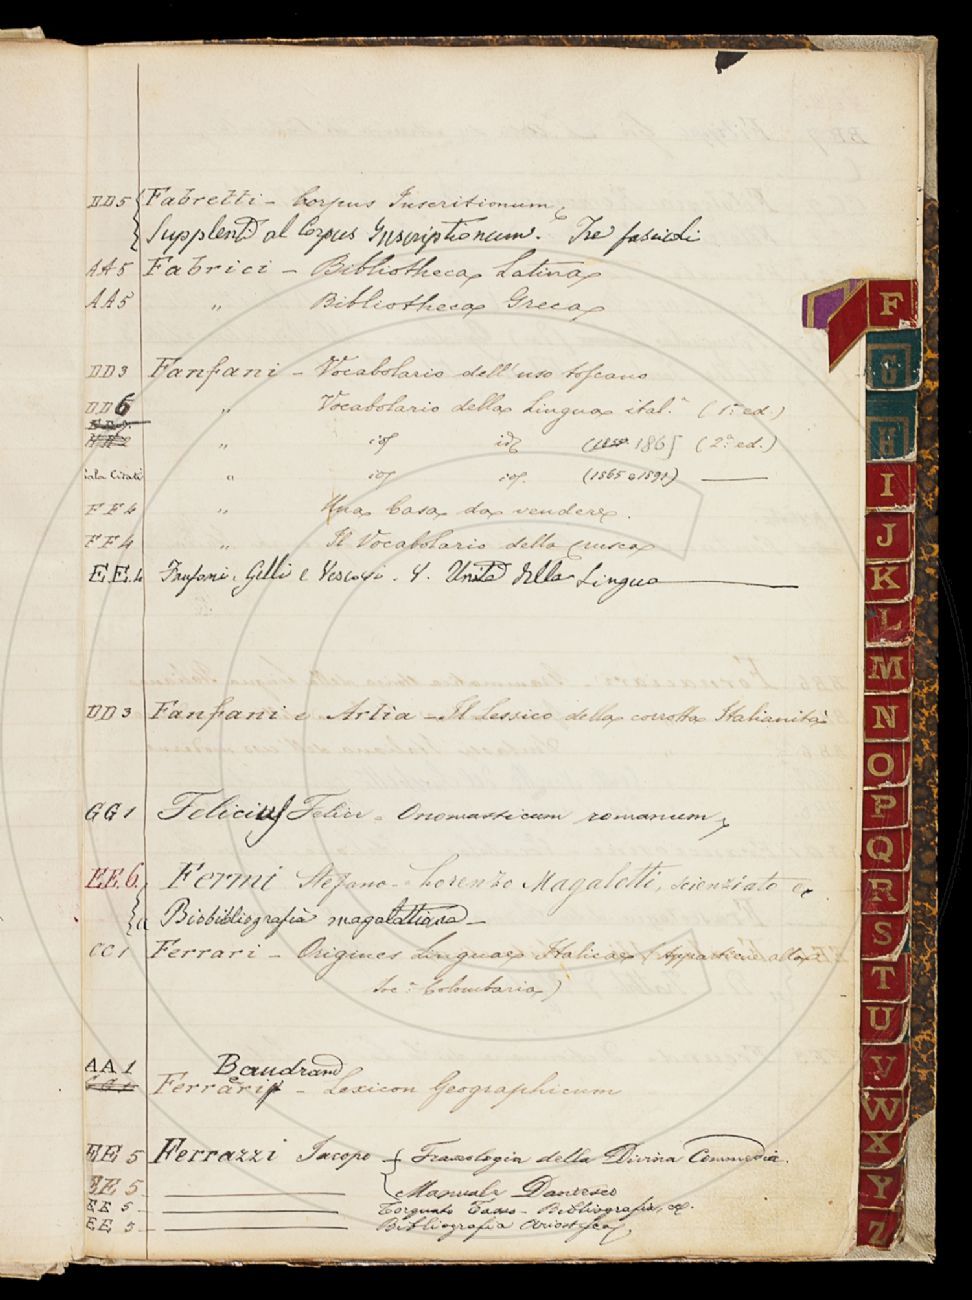 DD5 Fabretti - Corpus Inscritionum
Supplemti al Corpus Inscriptionum. Tre fascicoli
AA5 Fabrici - Bibliotheca Latina
AA5 " Bibliotheca Greca
DD3 Fanfani - Vocabolario dell'uso toscano
DD6 " Vocabolario della Lingua ital.a (1a ed.)
" id id (1865 (2a ed.)
Sala Citati " id id. (1865 e 1891)
FF4 " Una Casa da vendere.
FF4 " Il Vocabolario della Crusca
EE.4 Fanfani, Gelli e . L'Unità della Lingua
DD3 Fanfani e Arlia - Il Lessico della corrotta Italianità
GG1 Felicius Felix - Onomasticum romanum
EE.6. Fermi Stefano - Lorenzo Magalotti, scienziato e
Biobibliografia magalottiana
CC1 Ferrari - Origines Linguae Italicae (Appartiene alla
Soc.a Colombaria)
AA1 Baudrand
Ferrari - Lexicon Geographicum
EE5 Ferrazzi Jacopo - Fraseologia della Divina Commedia.
EE5 Manuale Dantesco
EE5 - Torquato Tasso - Bibliografia, ec.
EE5 - Bibliografia Ariostesca
F
G
H
I
J
K
L
M
N
O
P
Q
R
S
T
U
V
W
X
Y
Z